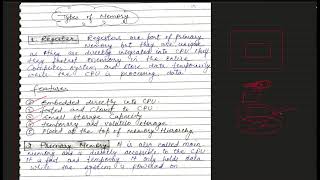 Types of Memory
1. Registers Registers are part of primary
memory but they are unique
as they are directly integrated into CPU. They
fastest memory in the entire
Computer system, and store data temporarily
while the CPU is processing data.
Features
① Embedded directly into CPU
② Fastest and Closest to CPU
③ Small storage Capacity
④ Temporary and volatile storage
⑤ Placed at the top of memory
2 Primary Memory It is also called main
memory and is directly accessible to the CPU
It is fast and temporary It only holds data
while the system is powered on